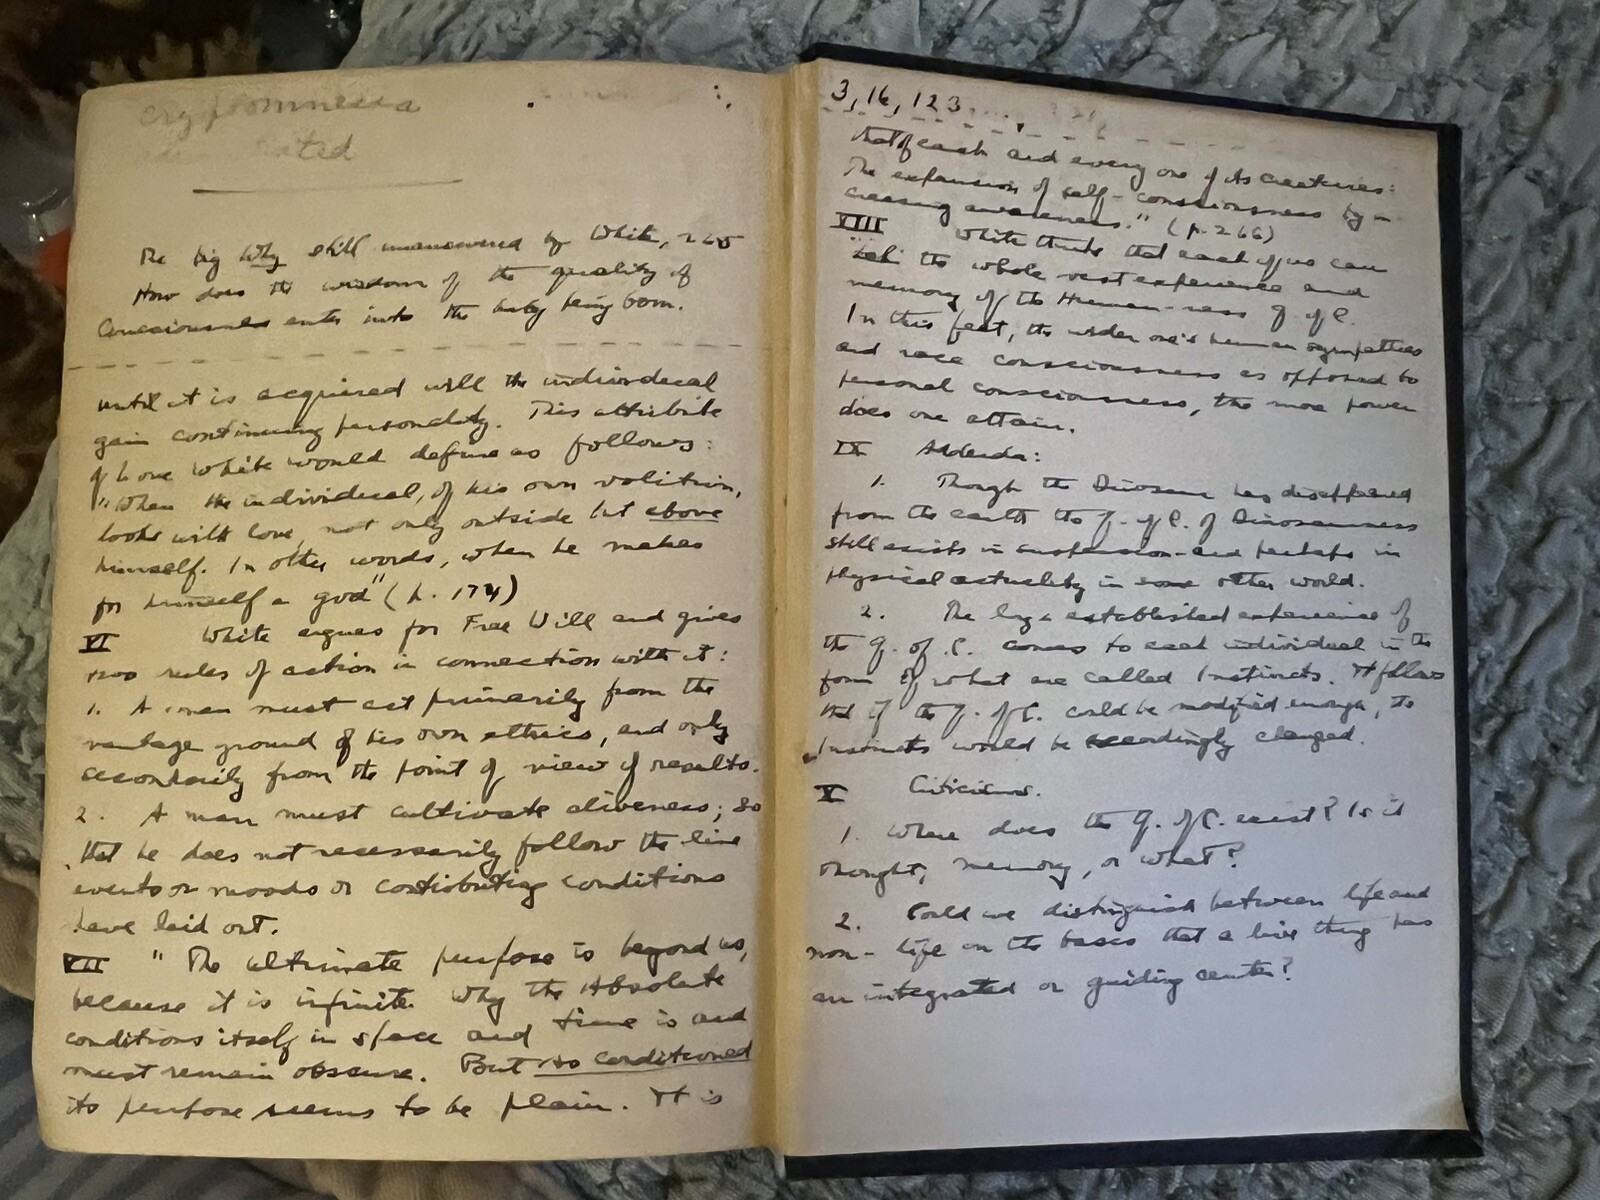 Cryptomnesia
The big Why still unanswered by White, 265
How does the wisdom of the quality of
Consciousness enter into the baby being born.
until it is acquired will the individual
gain continuing personality. This attribute
of Love White would define as follows:
"When the individual, of his own volition,
looks with love, not only outside but above
himself. In other words, when he makes
for himself a god" (p. 174)
VI White argues for Free Will and gives
two rules of action in connection with it:
1. A man must act primarily from the
vantage ground of his own ethics, and only
secondarily from the point of view of results.
2. A man must cultivate aliveness; so
that he does not necessarily follow the line
events or moods or contributing conditions
have laid out.
VII "The ultimate purpose is beyond us,
because it is infinite. Why the Absolute
conditions itself in space and time is and
must remain obscure. But as conditioned
its purpose seems to be plain. It is
3, 16, 123
that of each and every one of its creatures:
The expansion of self-consciousness by in-
creasing awareness." (p. 266)
VIII White thinks that each of us can
the whole vast experience and
memory of the Human-ness Q. of C.
In this feat, the wider one's human sympathies
and race consciousness as opposed to
personal consciousness, the more power
does one attain.
IX Addenda:
1. Though the Dinosaur has disappeared
from the earth the Q. of C. of Dinosaurness
still exists in suspension—and perhaps in
physical actuality in some other world.
2. The established experience of
the Q. of C. comes to each individual in the
form of what are called Instincts. It follows
that if the Q. of C. could be modified enough, the
Instincts would be accordingly changed.
X Criticisms.
1. Where does the Q. of C. exist? Is it
thought, memory, or what?
2. Could we distinguish between life and
non-life on the basis that a live thing has
an integrated or guiding center?